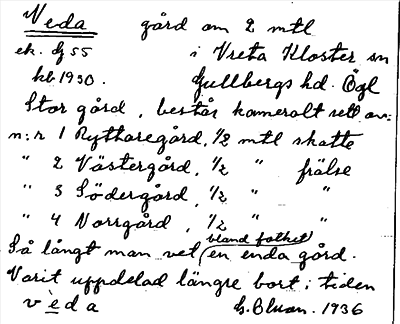 Veda gård om 2 mtl
ek. bl 55 i Vreta Kloster sn
kb 1930. Gullbergs hd. Ögl
Stor gård, består kameralt sett av:
n:r 1 Ryttaregård, 1/2 mtl skatte
" 2 Västergård, 1/2 " frälse
" 3 Södergård, 1/2 " "
" 4 Norrgård, 1/2 " "
bland folket
Så långt man vet en enda gård.
Varit uppdelad längre bort i tiden
vèda 1936